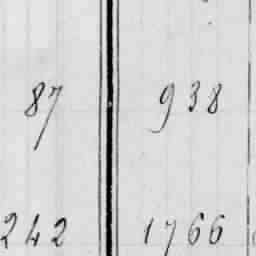 87 938
242 1766